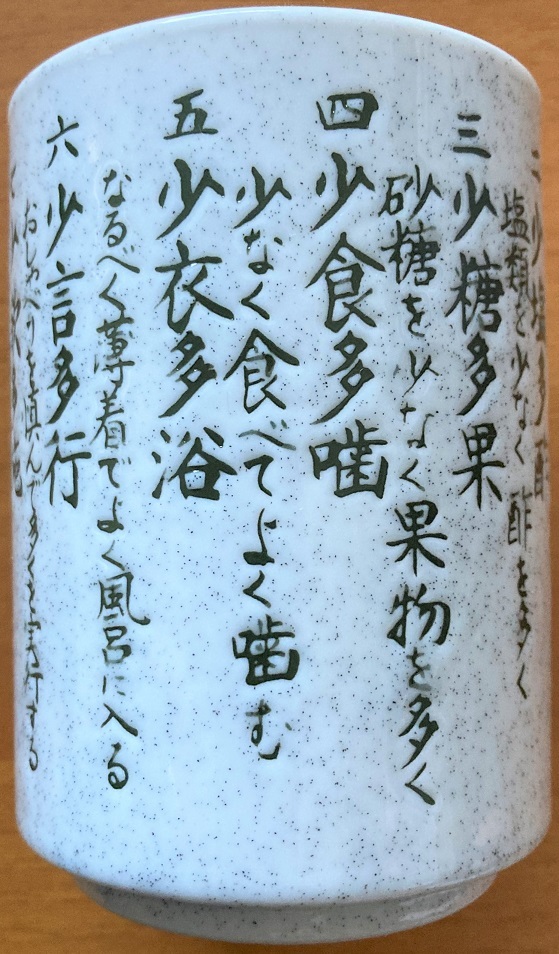 二 少塩多酢
塩類を少なく酢を多く
三 少糖多果
砂糖を少なく果物を多く
四 少食多噛
少なく食べてよく噛む
五 少衣多浴
なるべく薄着でよく風呂に入る
六 少言多行
おしゃべりを慎んで多くを実行する